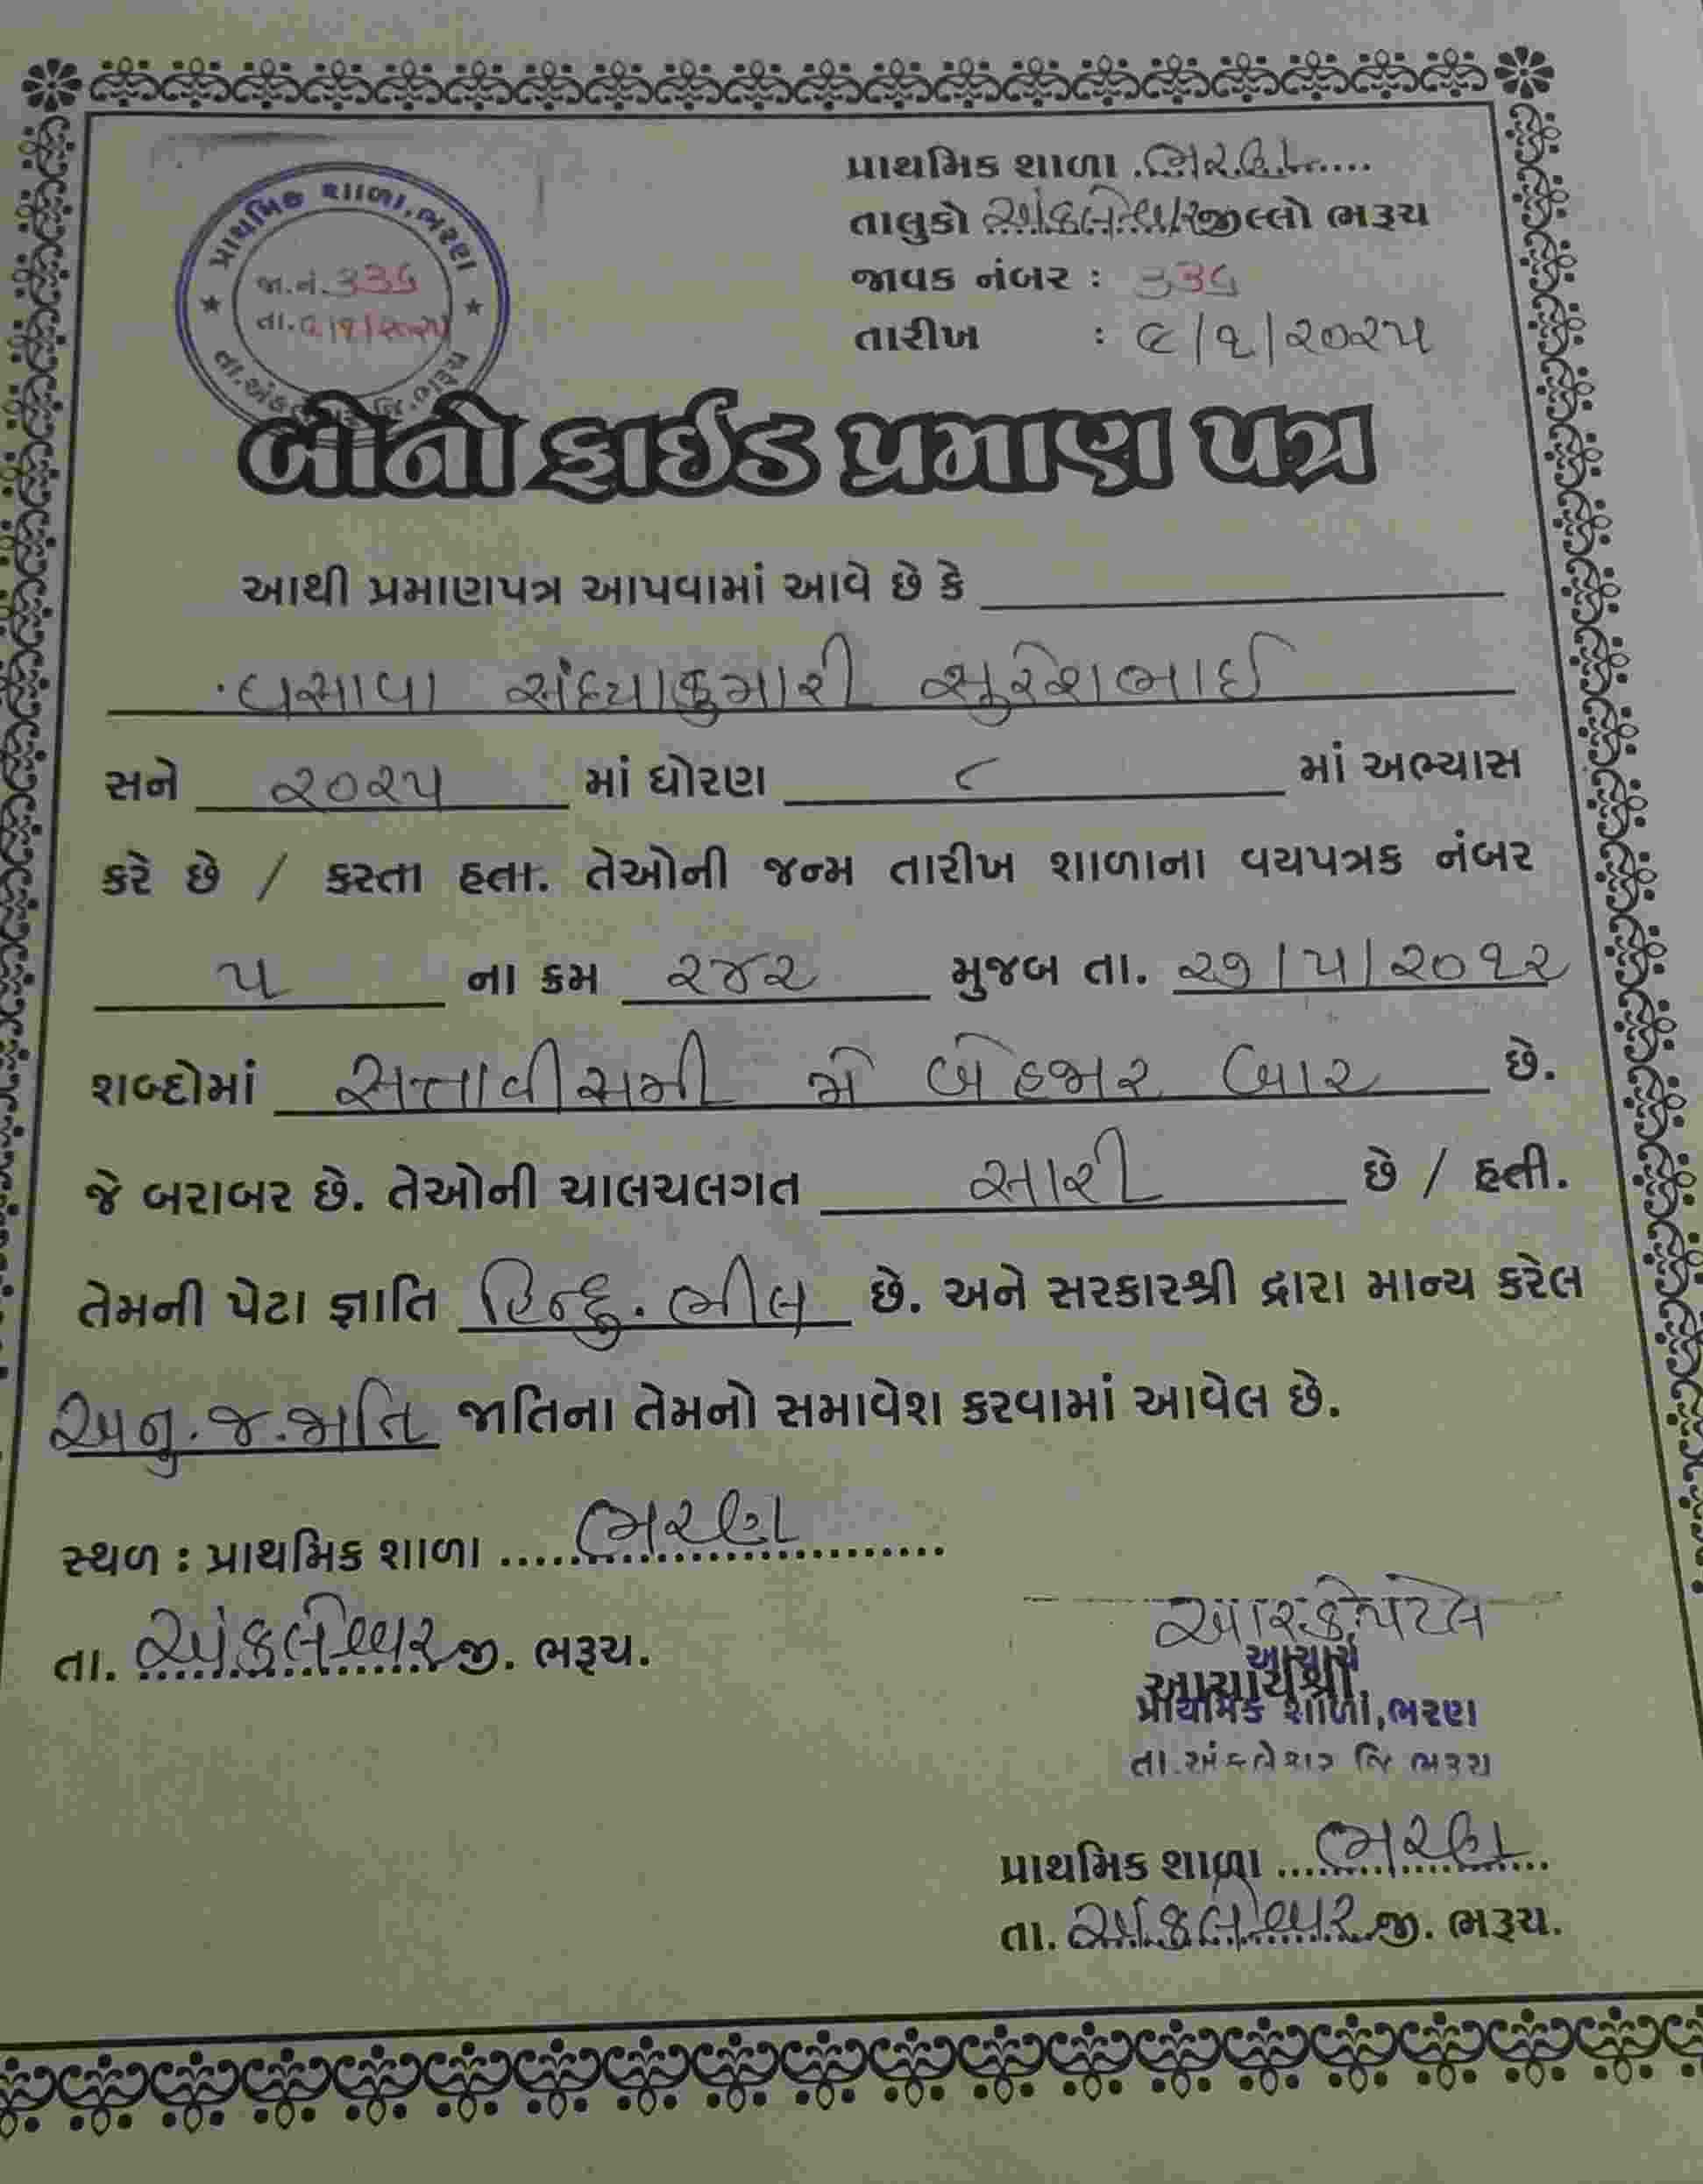 પ્રાથમિક શાળા, ભરણ
જા.નં. ૩૩૬
તા. ૯/૧/૨૦૨૫
પ્રાથમિક શાળા ભરણ
તાલુકો અંકલેશ્વર જીલ્લો ભરૂચ
જાવક નંબર : ૩૩૬
તારીખ : ૯/૧/૨૦૨૫
બોનોફાઈડ પ્રમાણ પત્ર
આથી પ્રમાણપત્ર આપવામાં આવે છે કે
વસાવા સંધ્યાકુમારી સુરેશભાઈ
સને ૨૦૨૫ માં ધોરણ ૮ માં અભ્યાસ
કરે છે / કરતા હતા. તેઓની જન્મ તારીખ શાળાના વયપત્રક નંબર
૫ ના ક્રમ ૨૪૨ મુજબ તા. ૨૭/૫/૨૦૧૨
શબ્દોમાં સત્તાવીસમી મે બેહજાર બાર છે.
જે બરાબર છે. તેઓની ચાલચલગત સારી છે / હતી.
તેમની પેટા જ્ઞાતિ હિન્દુ. ભીલ છે. અને સરકારશ્રી દ્વારા માન્ય કરેલ
અનુ.જ.જાતિ જાતિના તેમનો સમાવેશ કરવામાં આવેલ છે.
સ્થળ : પ્રાથમિક શાળા ભરણ
તા. અંકલેશ્વર જી. ભરૂચ.
આર.કે.પટેલ
આચાર્ય
આચાર્યશ્રી
પ્રાથમિક શાળા, ભરણ
તા.અંકલેશ્વર જિ ભરૂચ
પ્રાથમિક શાળા ભરણ
તા. અંકલેશ્વર જી. ભરૂચ.